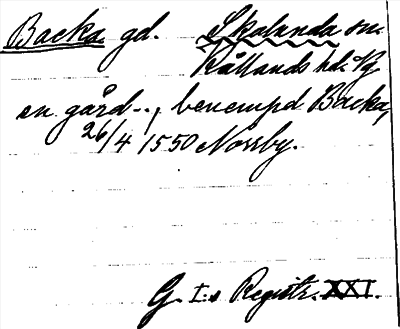 Backa gd. Skalunda sn.
Kållands hd. Vg
en gård -., benempd Backa,
26/4 1550 Norsby.
G. I:s Registr. XXI.